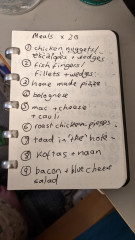 Meals x 20
① chicken nuggets/
escalopes + wedges
② fish fingers/
fillets + wedges
③ home made pizza
④ bolognese
⑤ mac + cheese
+ cauli
⑥ roast chicken
⑦ toad in the hole
⑧ koftas + naan
⑨ bacon + blue cheese
salad